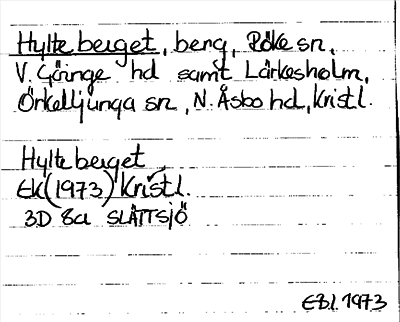 Hylteberget, berg, Röke sn,
V. Göinge hd samt Lärkesholm,
Örkelljunga sn, N. Åsbo hd, Kristl.
Hylteberget
EK (1973) Kristl.
3D 8a SLÄTTSJÖ
EBL 1973